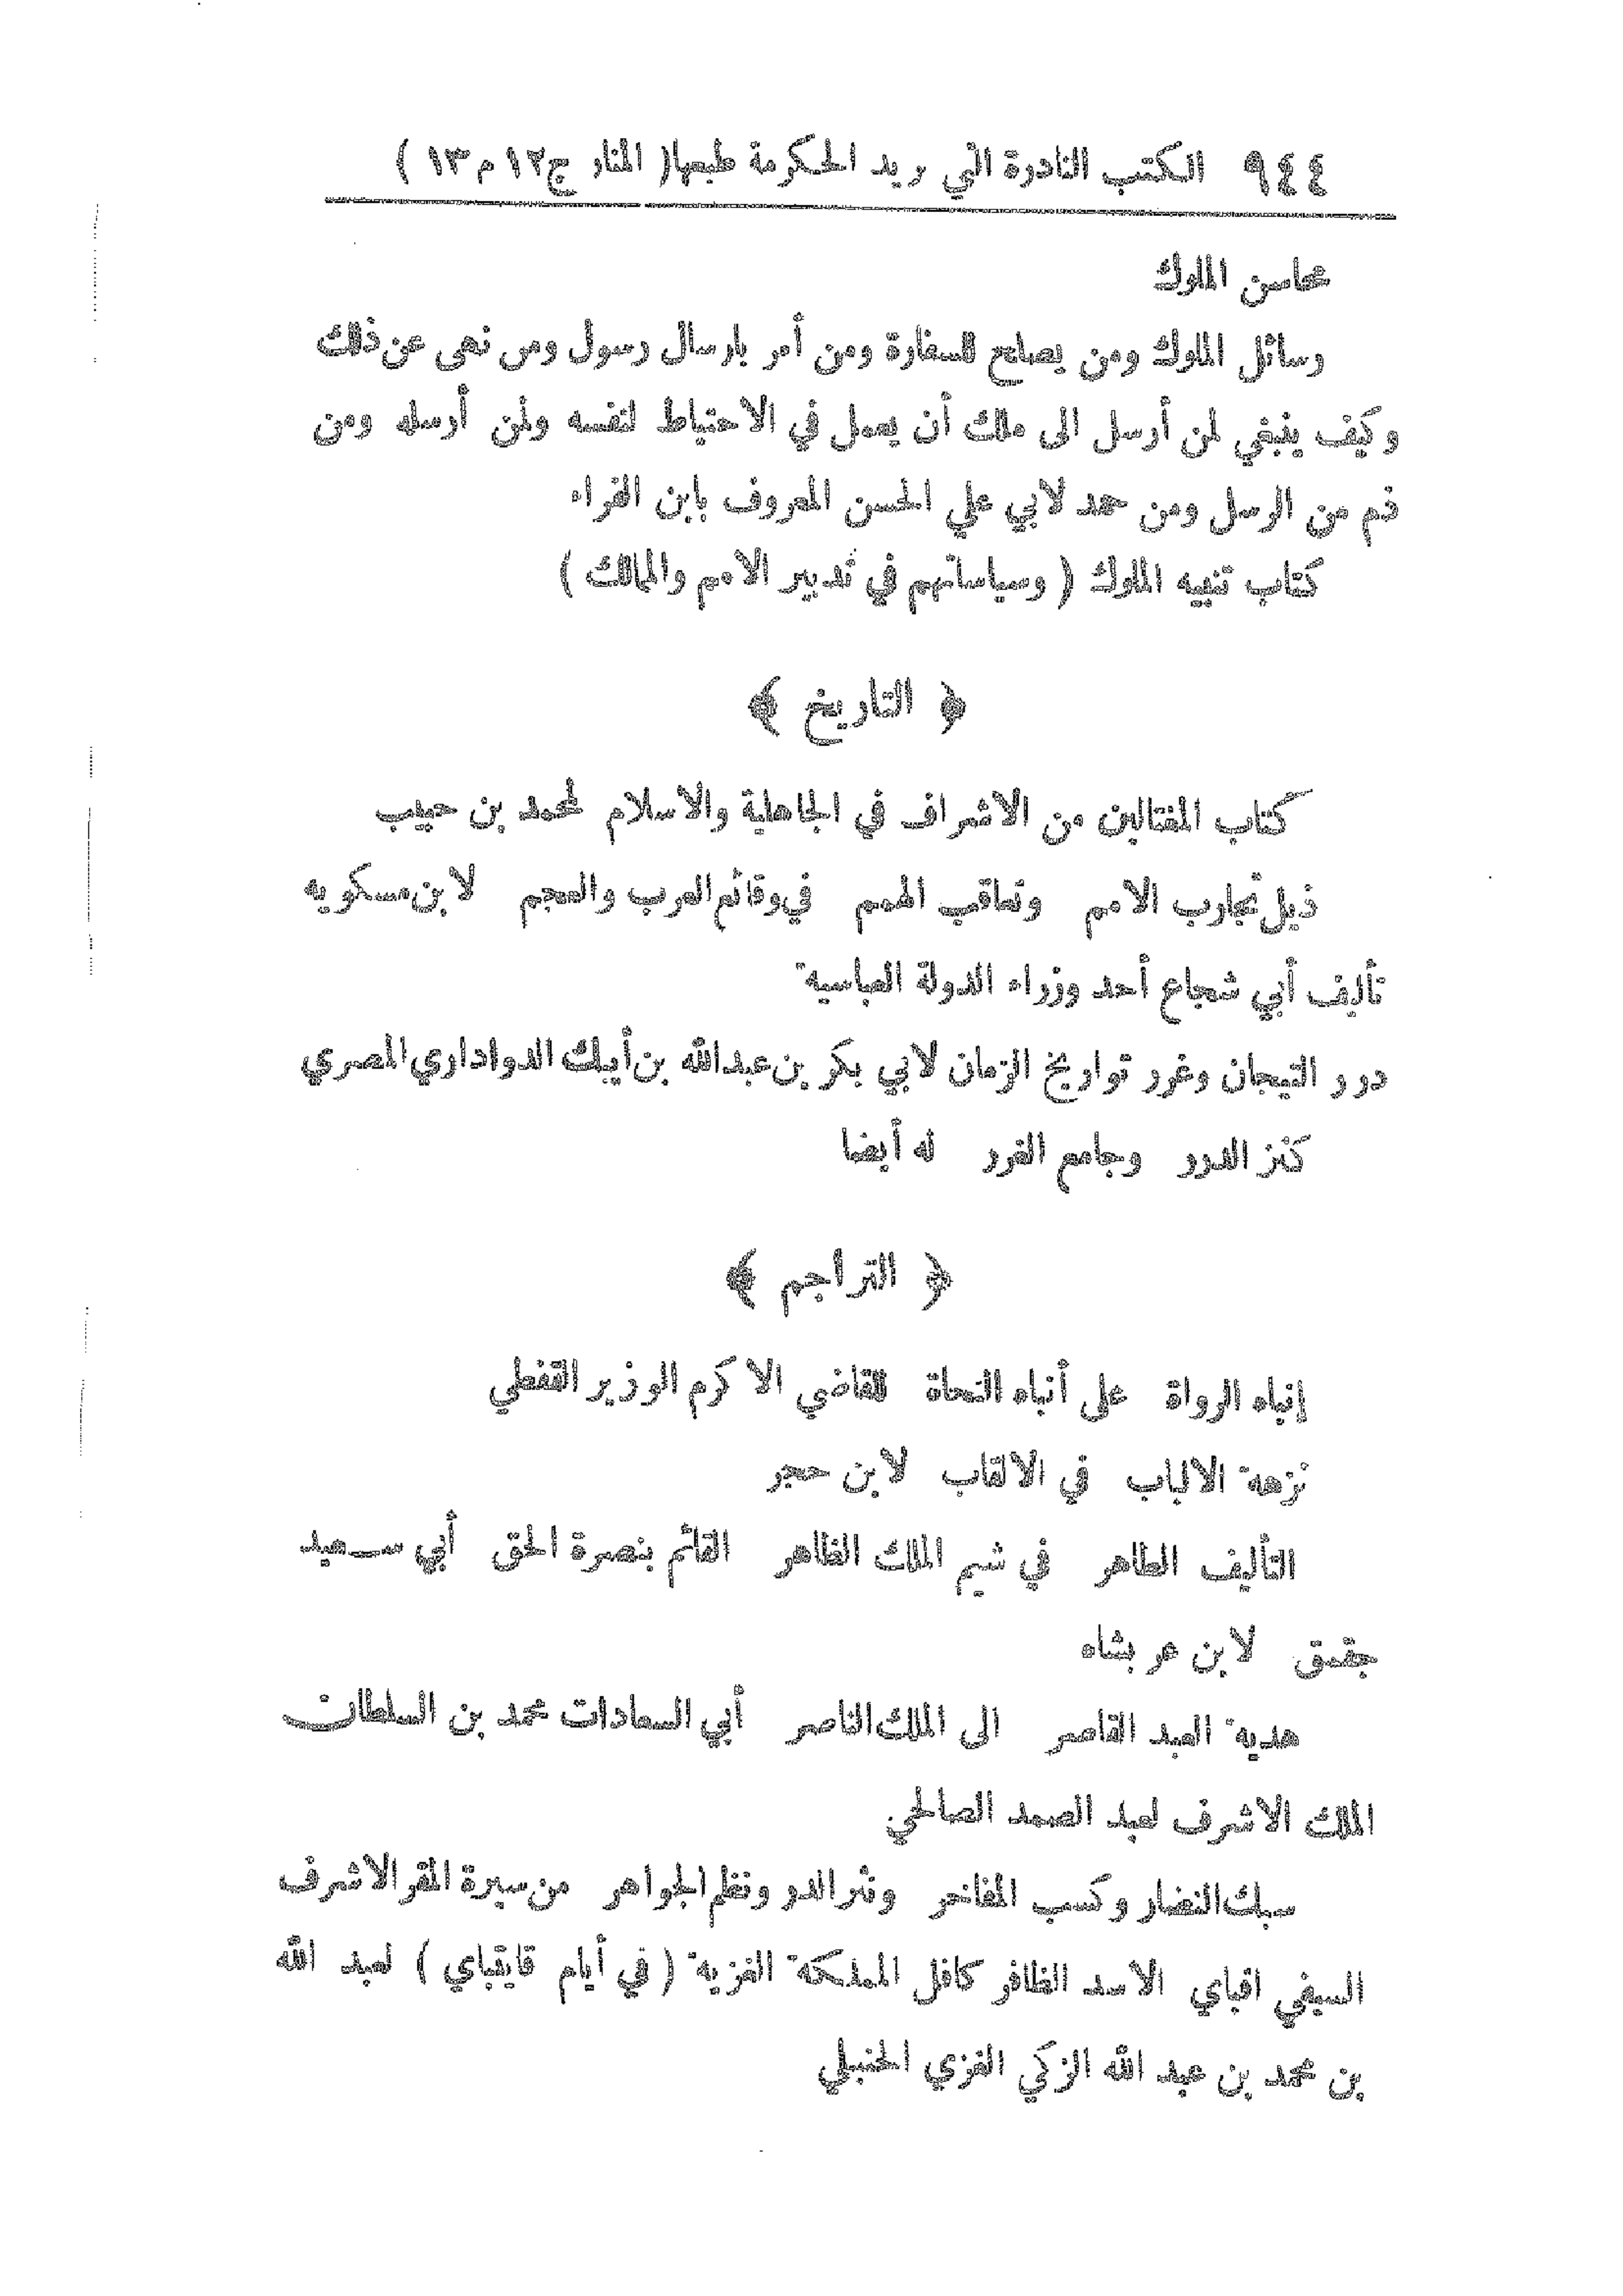 ٩٤٤ الكتب النادرة التي يريد الحكومة طبعها ( المنار ج١٢ م١٣ )
محاسن الملوك
رسائل الملوك ومن يصلح للسفارة ومن أمر بارسال رسول ومن نهى عن ذلك
وكيف ينبغي لمن أرسل الى ملك أن يعمل في الاحتياط لنفسه ولمن أرسله ومن
ذم من الرسل ومن حمد لابي علي الحسن المعروف بابن الفراء
كتاب تنبيه الملوك ( وسياساتهم في تدبير الامم والممالك )
﴿ التاريخ ﴾
كتاب المغتالين من الاشراف في الجاهلية والاسلام لمحمد بن حبيب
ذيل تجارب الامم وتعاقب الهمم في وقائع العرب والعجم لابن مسكويه
تأليف أبي شجاع أحد وزراء الدولة العباسية
درر التيجان وغرر تواريخ الزمان لابي بكر بن عبدالله بن أيبك الدواداري المصري
كنز الدرر وجامع الغرر له أيضا
﴿ التراجم ﴾
إنباه الرواة على أنباه النحاة للقاضي الاكرم الوزير القفطي
نزهة الالباب في الالقاب لابن حجر
التأليف الطاهر في شيم الملك الظاهر القائم بنصرة الحق أبي سعيد
جقمق لابن عربشاه
هدية العبد القاصر الى الملك الناصر أبي السعادات محمد بن السلطان
الملك الاشرف لعبد الصمد الصالحي
سبك النضار وكسب المفاخر ونثر الدر ونظم الجواهر من سيرة المقر الاشرف
السيفي اقباي الاسد الظافر كافل المملكة الغزية ( في أيام قايتباي ) لعبد الله
بن محمد بن عبد الله الزكي الغزي الحنبلي